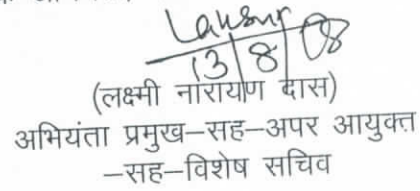 13/8/08
(लक्ष्मी नारायण दास)
अभियंता प्रमुख–सह–अपर आयुक्त
–सह–विशेष सचिव